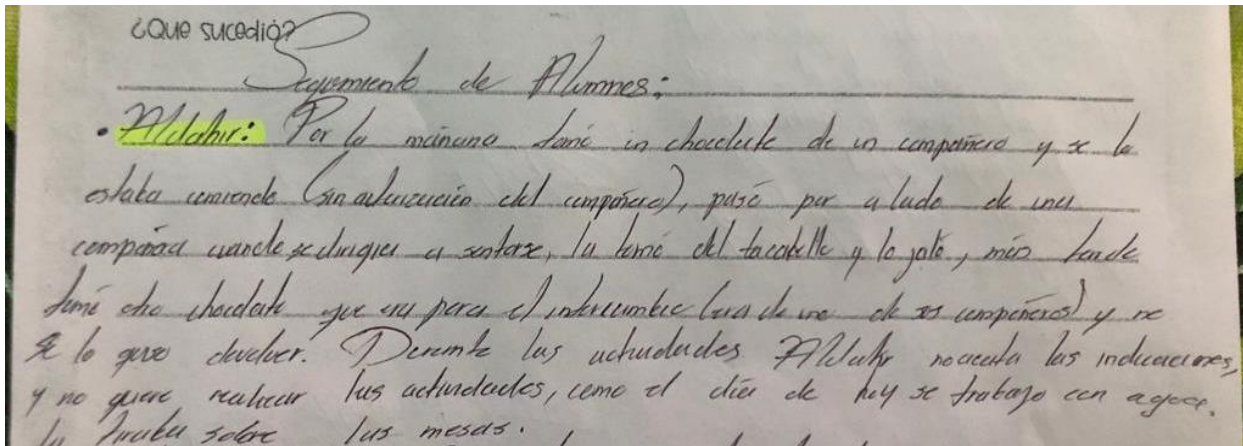 ¿Que sucedió?
Seguimiento de Alumnos:
• Aldahir: Por la mañana tomó un chocolate de un compañero y se lo
estaba comiendo (sin autorización del compañero), pasó por a lado de una
compañera cuando se dirigía a sentarse, la tomó del cabello y lo jaló, más tarde
tomó otro chocolate que era para el intercambio (era de uno de sus compañeros) y no
se lo quiso devolver. Durante las actividades Aldahir no acata las indicaciones,
y no quiere realizar las actividades, como el día de hoy se trabajo con agua.
la tiraba sobre las mesas.